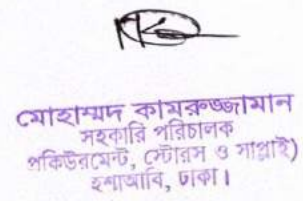 মোহাম্মদ কামরুজ্জামান
সহকারি পরিচালক
প্রকিউরমেন্ট, স্টোরস ও সাপ্লাই)
হশাআবি, ঢাকা।